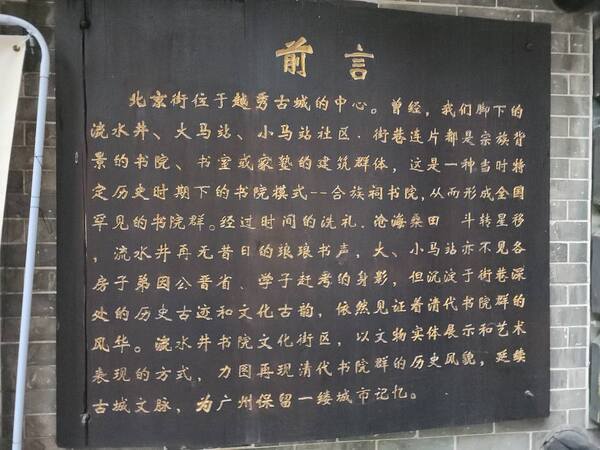 前言
北京街位于越秀古城的中心。曾经，我们脚下的
流水井、大马站、小马站社区．街巷连片都是宗族背
景的书院、书室或家塾的建筑群体，这是一种当时特
定历史时期下的书院模式--合族祠书院，从而形成全国
罕见的书院群。经过时间的洗礼．沧海桑田 斗转星移
，流水井再无昔日的琅琅书声，大、小马站亦不见各
房子弟因公晋省、学子赶考的身影，但沉淀于街巷深
处的历史古迹和文化古韵，依然见证着清代书院群的
风华。流水井书院文化街区，以文物实体展示和艺术
表现的方式，力图再现清代书院群的历史风貌，延续
古城文脉，为广州保留一缕城市记忆。